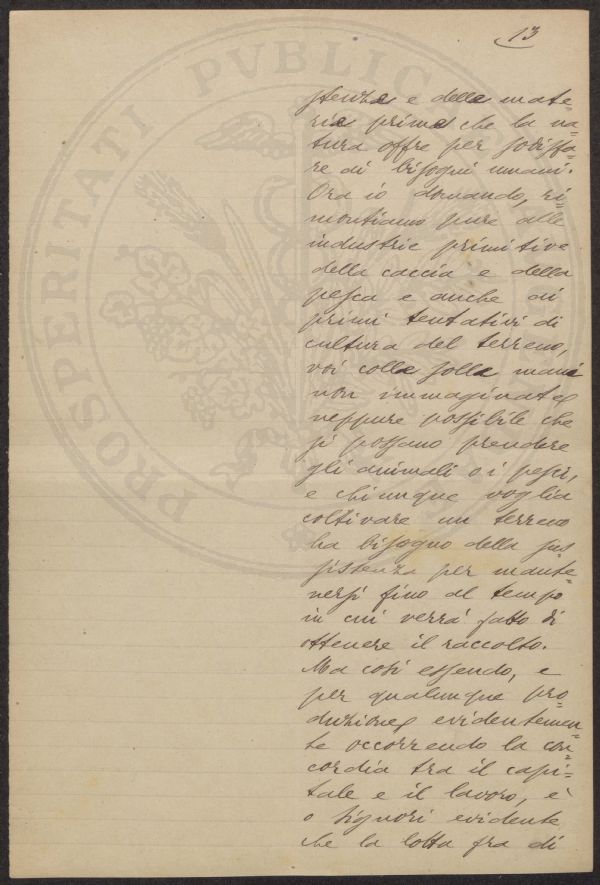 13
stenza e delle mate=
rie prime che la na=
tura offre per sodisfa=
re ai bisogni umani.
Ora io domando, ri=
montiamo pure alle
industrie primitive
della caccia e della
pesca e anche ai
primi tentativi di
cultura del terreno,
voi colle solle mani
non immaginate
neppure possibile che
si possano prendere
gli animali o i pesci,
e chiunque voglia
coltivare un terreno
ha bisogno della sus
sistenza per mante=
nersi fino al tempo
in cui verrà fatto di
ottenere il raccolto.
Ma così essendo, e
per qualunque pro=
duzione evidentemen=
te occorrendo la con=
cordia tra il capi=
tale e il lavoro, è
o signori evidente
che la lotta fra di
PROSPERITATI PVBLIC